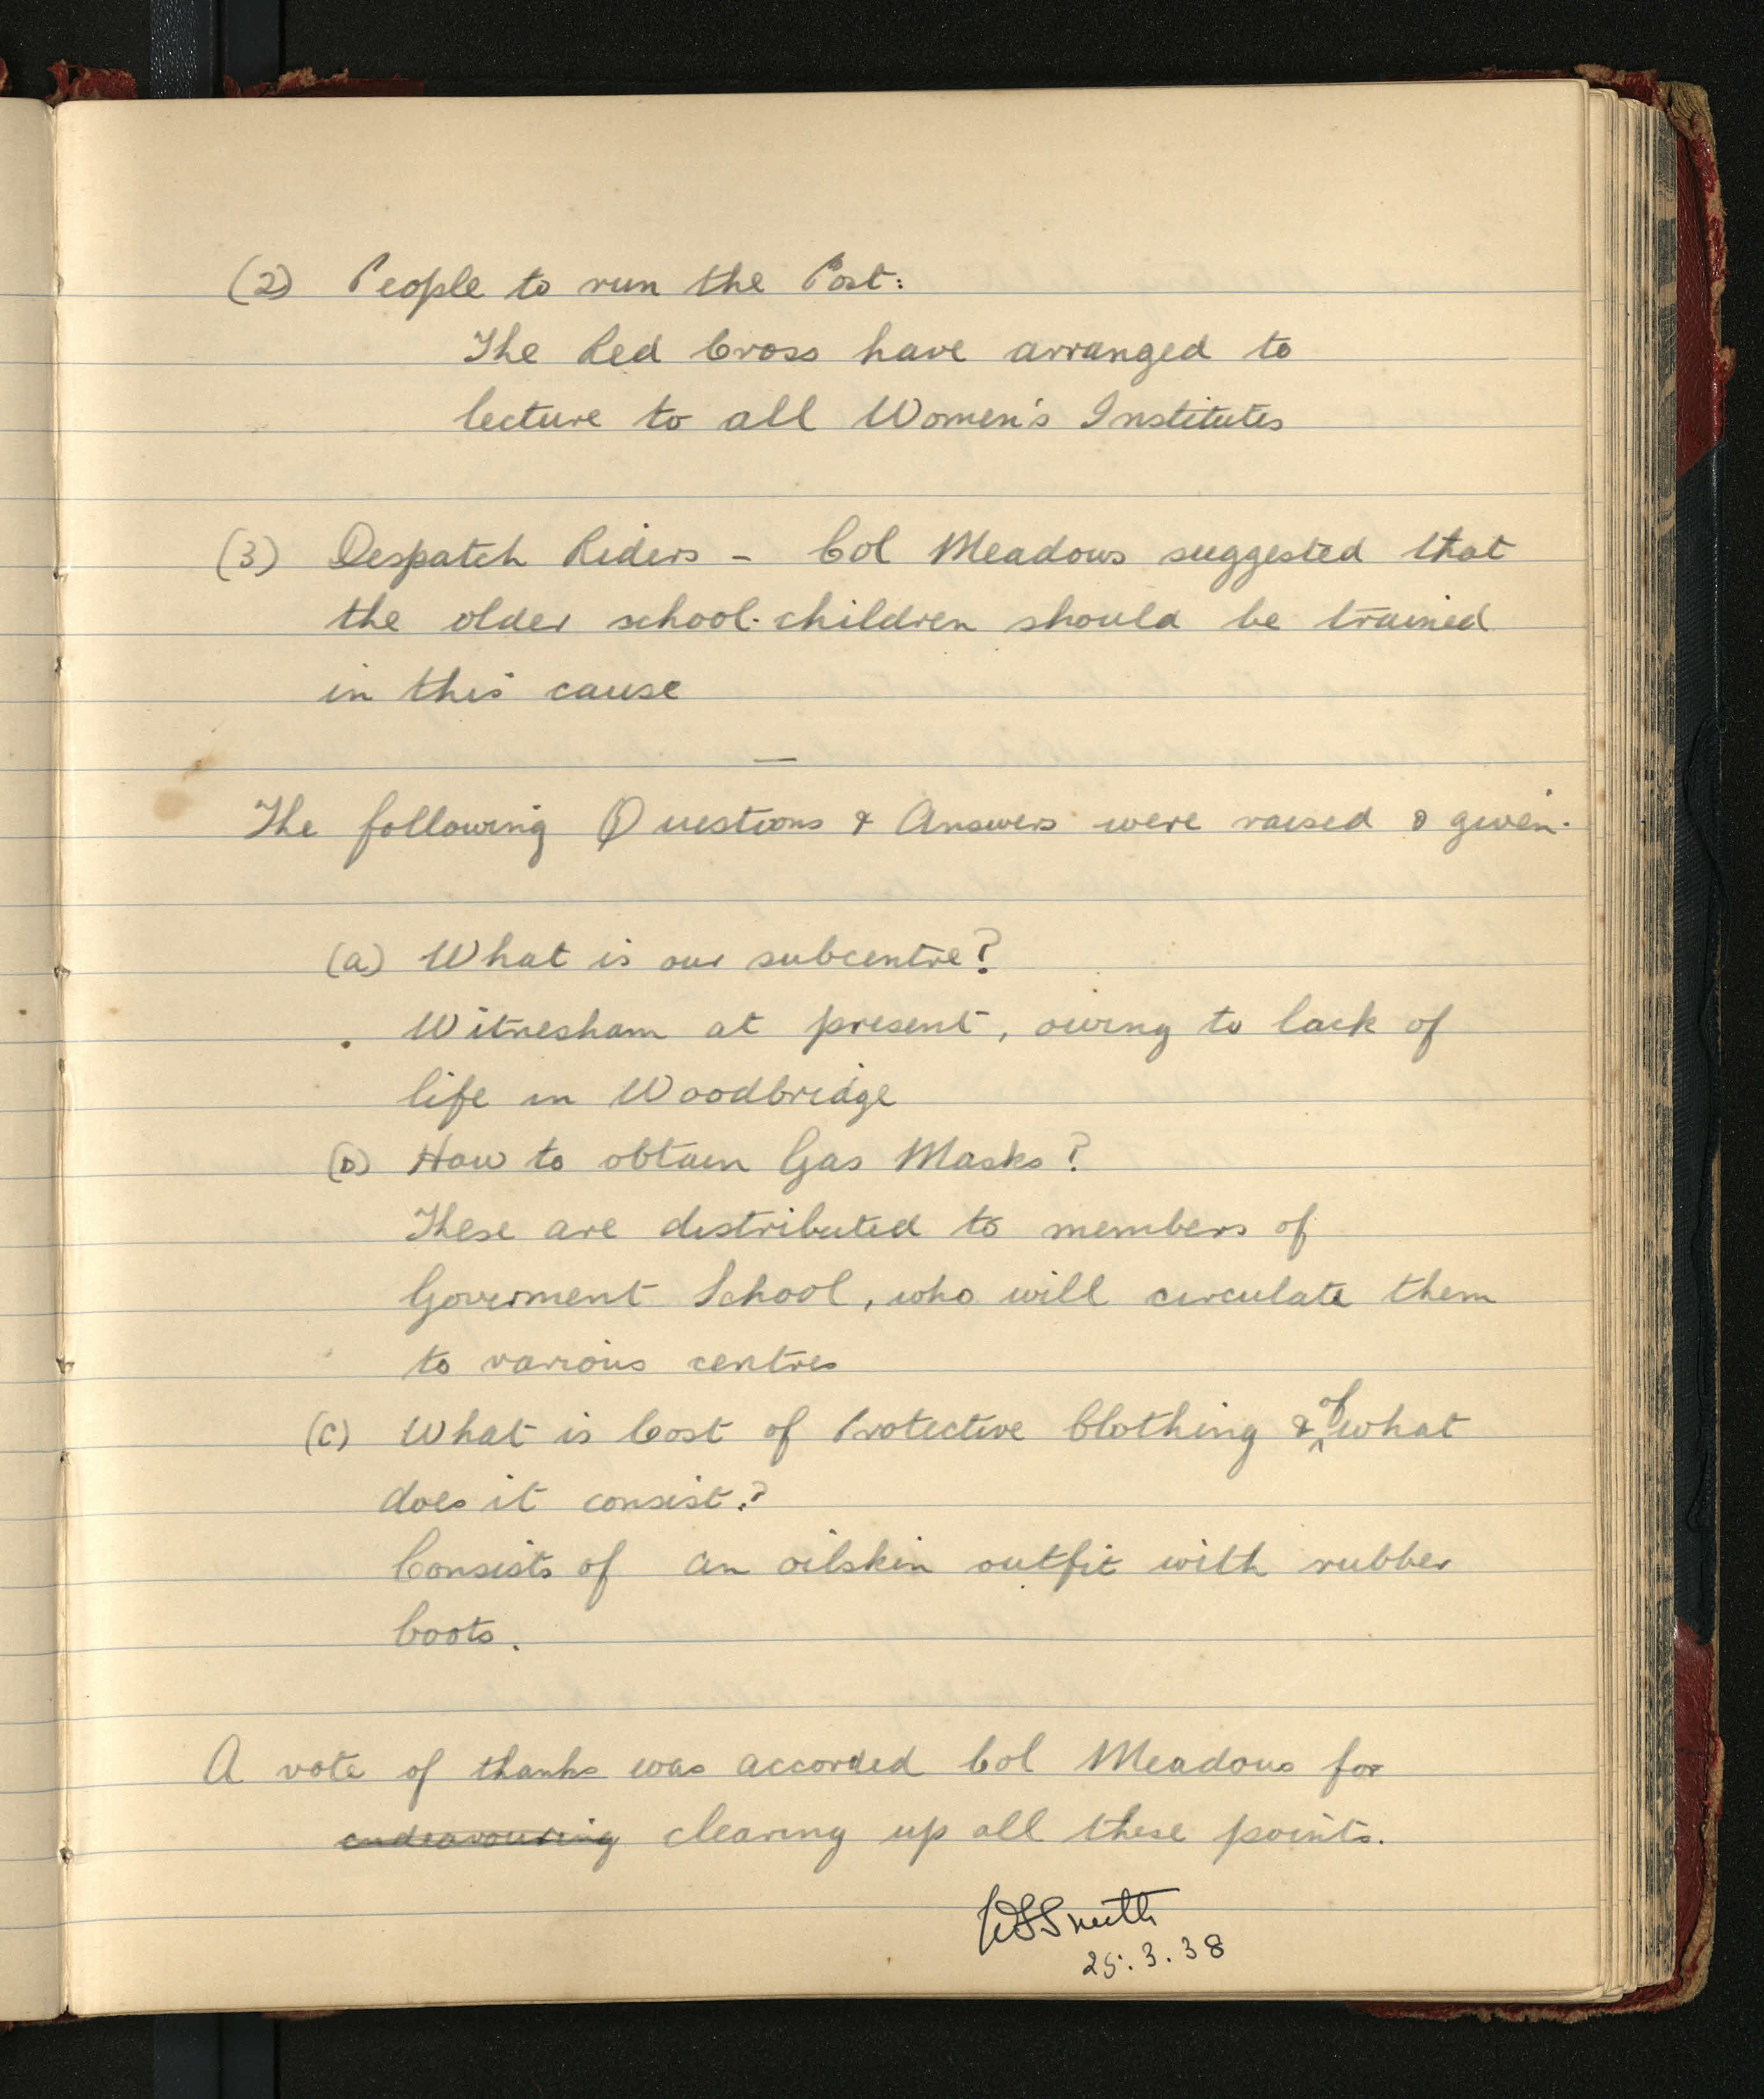 (2) People to run the Post:
The Red Cross have arranged to
lecture to all Women's Institutes
(3) Despatch Riders - Col Meadows suggested that
the older school-children should be trained
in this cause
The following Questions & Answers were raised & given.
(a) What is our subcentre?
Witnesham at present, owing to lack of
life in Woodbridge
(b) How to obtain Gas Masks?
These are distributed to members of
Goverment School, who will circulate them
to various centres
(c) What is Cost of Protective Clothing & of what
does it consist?
Consists of an oilskin outfit with rubber
boots.
A vote of thanks was accorded Col Meadows for
endeavouring clearing up all these points.
Smith
25.3.38